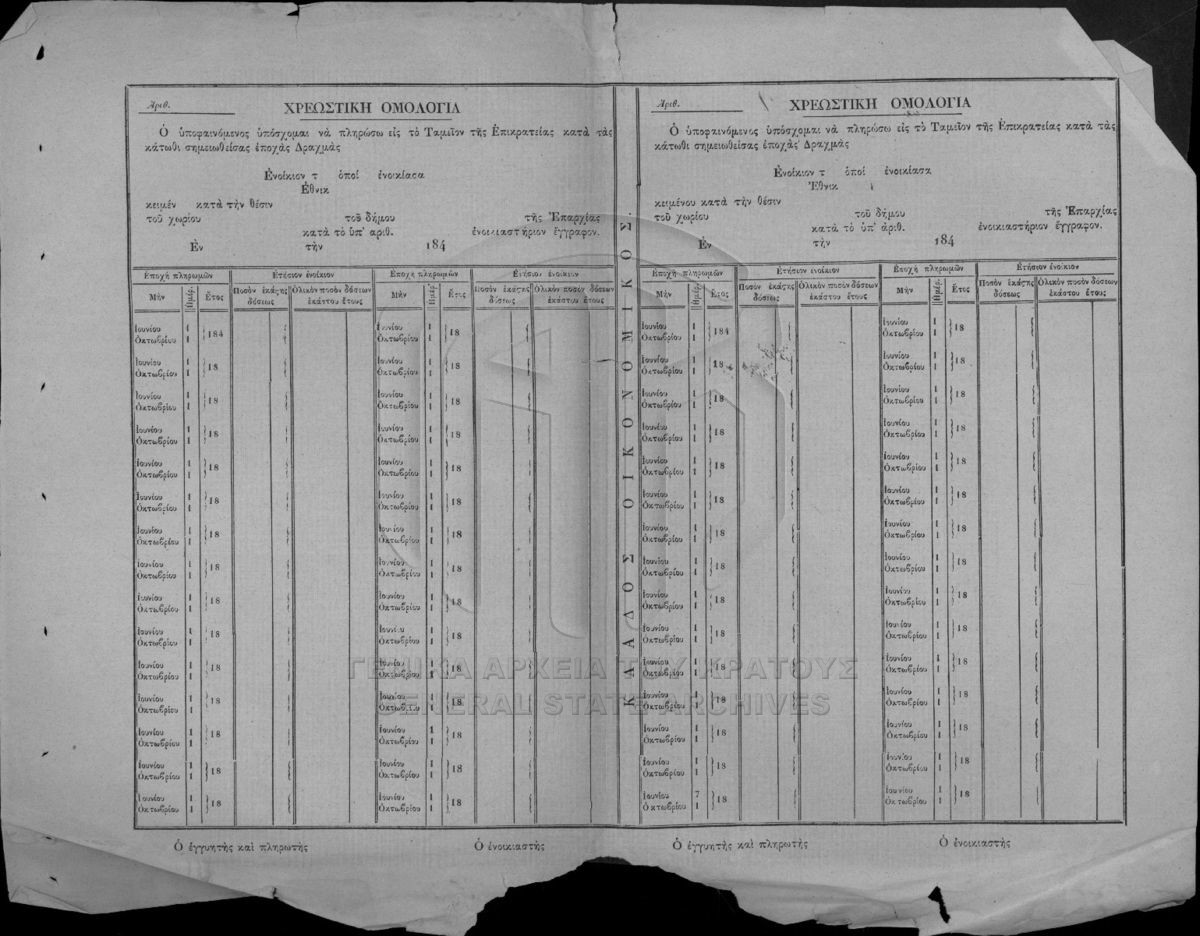 Ἀριθ.
ΧΡΕΩΣΤΙΚΗ ΟΜΟΛΟΓΙΑ
Ὁ ὑποφαινόμενος ὑπόσχομαι νὰ πληρώσω εἰς τὸ Ταμεῖον τῆς Ἐπικρατείας κατὰ τὰς
κάτωθι σημειωθείσας ἐποχὰς Δραχμὰς
Ἐνοίκιον τ ὁποί ἐνοικίασα
Ἐθνικ
κειμέν κατὰ τὴν θέσιν
τοῦ χωρίου τοῦ δήμου τῆς Ἐπαρχίας
κατὰ τὸ ὑπ' ἀριθ. ἐνοικιαστήριον ἔγγραφον.
Ἐν τὴν 184
Ἐποχὴ πληρωμῶν Ἐτήσιον ἐνοίκιον Ἐποχὴ πληρωμῶν Ἐτήσιον ἐνοίκιον
Μὴν Ἡμέρ. Ἔτος Ποσὸν ἑκάςης δόσεως Ὁλικὸν ποσὸν δόσεων ἑκάστου ἔτους Μὴν Ἡμέρ. Ἔτος Ποσὸν ἑκάςης δόσεως Ὁλικὸν ποσὸν δόσεων ἑκάστου ἔτους
Ἰουνίου 1 184 Ἰουνίου 1 18
Ὀκτωβρίου 1 Ὀκτωβρίου 1
Ἰουνίου 1 18 Ἰουνίου 1 18
Ὀκτωβρίου 1 Ὀκτωβρίου 1
Ἰουνίου 1 18 Ἰουνίου 1 18
Ὀκτωβρίου 1 Ὀκτωβρίου 1
Ἰουνίου 1 18 Ἰουνίου 1 18
Ὀκτωβρίου 1 Ὀκτωβρίου 1
Ἰουνίου 1 18 Ἰουνίου 1 18
Ὀκτωβρίου 1 Ὀκτωβρίου 1
Ἰουνίου 1 18 Ἰουνίου 1 18
Ὀκτωβρίου 1 Ὀκτωβρίου 1
Ἰουνίου 1 18 Ἰουνίου 1 18
Ὀκτωβρίου 1 Ὀκτωβρίου 1
Ἰουνίου 1 18 Ἰουνίου 1 18
Ὀκτωβρίου 1 Ὀκτωβρίου 1
Ἰουνίου 1 18 Ἰουνίου 1 18
Ὀκτωβρίου 1 Ὀκτωβρίου 1
Ἰουνίου 1 18 Ἰουνίου 1 18
Ὀκτωβρίου 1 Ὀκτωβρίου 1
Ἰουνίου 1 18 Ἰουνίου 1 18
Ὀκτωβρίου 1 Ὀκτωβρίου 1
Ἰουνίου 1 18 Ἰουνίου 1 18
Ὀκτωβρίου 1 Ὀκτωβρίου 1
Ἰουνίου 1 18 Ἰουνίου 1 18
Ὀκτωβρίου 1 Ὀκτωβρίου 1
Ἰουνίου 1 18 Ἰουνίου 1 18
Ὀκτωβρίου 1 Ὀκτωβρίου 1
Ἰουνίου 1 18 Ἰουνίου 1 18
Ὀκτωβρίου 1 Ὀκτωβρίου 1
Ὁ ἐγγυητὴς καὶ πληρωτὴς Ὁ ἐνοικιαστὴς
ΚΛΑΔΟΣ ΟΙΚΟΝΟΜΙΚΟΣ
Ἀριθ.
ΧΡΕΩΣΤΙΚΗ ΟΜΟΛΟΓΙΑ
Ὁ ὑποφαινόμενος ὑπόσχομαι νὰ πληρώσω εἰς τὸ Ταμεῖον τῆς Ἐπικρατείας κατὰ τὰς
κάτωθι σημειωθείσας ἐποχὰς Δραχμὰς
Ἐνοίκιον τ ὁποί ἐνοικίασα
Ἐθνικ
κειμένου κατὰ τὴν θέσιν
τοῦ χωρίου τοῦ δήμου τῆς Ἐπαρχίας
κατὰ τὸ ὑπ' ἀριθ. ἐνοικιαστήριον ἔγγραφον.
Ἐν τὴν 184
Ἐποχὴ πληρωμῶν Ἐτήσιον ἐνοίκιον Ἐποχὴ πληρωμῶν Ἐτήσιον ἐνοίκιον
Μὴν Ἡμέρ. Ἔτος Ποσὸν ἑκάςης δόσεως Ὁλικὸν ποσὸν δόσεων ἑκάστου ἔτους Μὴν Ἡμέρ. Ἔτος Ποσὸν ἑκάςης δόσεως Ὁλικὸν ποσὸν δόσεων ἑκάστου ἔτους
Ἰουνίου 1 184 Ἰουνίου 1 18
Ὀκτωβρίου 1 Ὀκτωβρίου 1
Ἰουνίου 1 18 Ἰουνίου 1 18
Ὀκτωβρίου 1 Ὀκτωβρίου 1
Ἰουνίου 1 18 Ἰουνίου 1 18
Ὀκτωβρίου 1 Ὀκτωβρίου 1
Ἰουνίου 1 18 Ἰουνίου 1 18
Ὀκτωβρίου 1 Ὀκτωβρίου 1
Ἰουνίου 1 18 Ἰουνίου 1 18
Ὀκτωβρίου 1 Ὀκτωβρίου 1
Ἰουνίου 1 18 Ἰουνίου 1 18
Ὀκτωβρίου 1 Ὀκτωβρίου 1
Ἰουνίου 1 18 Ἰουνίου 1 18
Ὀκτωβρίου 1 Ὀκτωβρίου 1
Ἰουνίου 1 18 Ἰουνίου 1 18
Ὀκτωβρίου 1 Ὀκτωβρίου 1
Ἰουνίου 1 18 Ἰουνίου 1 18
Ὀκτωβρίου 1 Ὀκτωβρίου 1
Ἰουνίου 1 18 Ἰουνίου 1 18
Ὀκτωβρίου 1 Ὀκτωβρίου 1
Ἰουνίου 1 18 Ἰουνίου 1 18
Ὀκτωβρίου 1 Ὀκτωβρίου 1
Ἰουνίου 1 18 Ἰουνίου 1 18
Ὀκτωβρίου 1 Ὀκτωβρίου 1
Ἰουνίου 1 18 Ἰουνίου 1 18
Ὀκτωβρίου 1 Ὀκτωβρίου 1
Ἰουνίου 1 18 Ἰουνίου 1 18
Ὀκτωβρίου 1 Ὀκτωβρίου 1
Ἰουνίου 7 18 Ἰουνίου 1 18
Ὀκτωβρίου 1 Ὀκτωβρίου 1
Ὁ ἐγγυητὴς καὶ πληρωτὴς Ὁ ἐνοικιαστὴς
ΓΕΝΙΚΑ ΑΡΧΕΙΑ ΤΟΥ ΚΡΑΤΟΥΣ
GENERAL STATE ARCHIVES